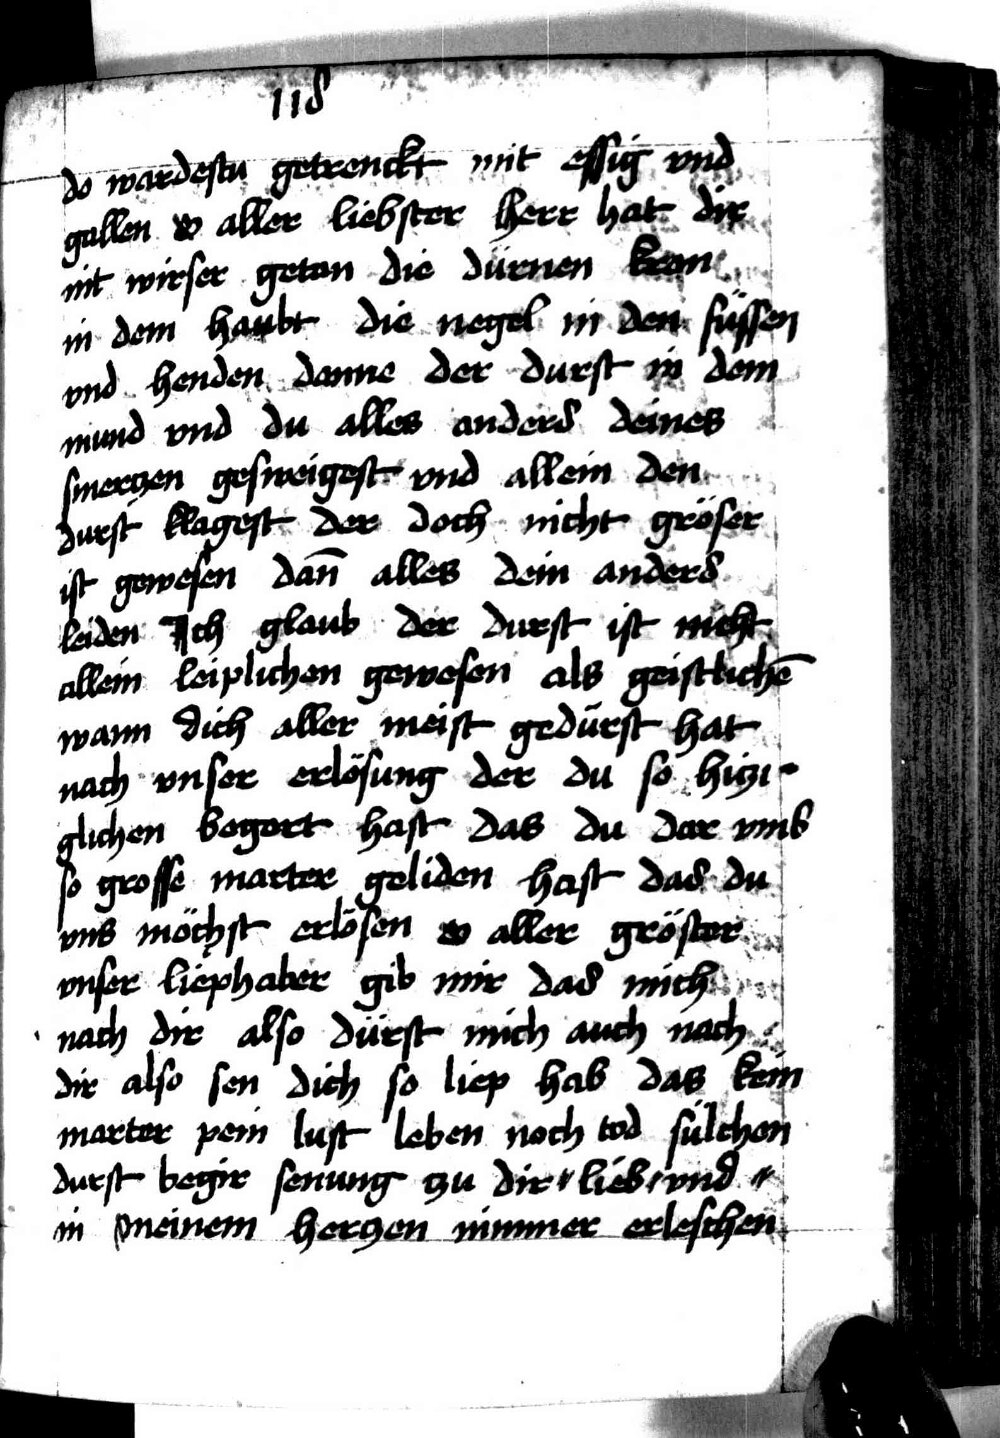 118
do wardestu getrenckt mit essig vnd
gallen o aller liebster herr hat dir
nit wirser getan die dürnen kron
in dem haubt die negel in den füssen
vnd henden danne der durst in dem
mund vnd du alles anders deines
smerczen gesweigest vnd allein den
durst klagest der doch nicht gröser
ist gewesen dan̄ alles dein anders
leiden Ich glaub der durst ist nicht
allein leiplichen gewesen als geistlichē
wann dich aller meist gedürst hat
nach vnser erlösung der du so hiczi-
glichen begert hast das du dar vmb
so grosse marter geliden hast das du
vns möchst erlösen o aller gröster
vnser liephaber gib mir das mich
nach dir also dürst mich auch nach
dir also sen dich so liep hab das kein
marter pein lust leben noch tod sülchen
durst begir senung czu dir lieb vnd
in meinem herczen nimmer erleschen